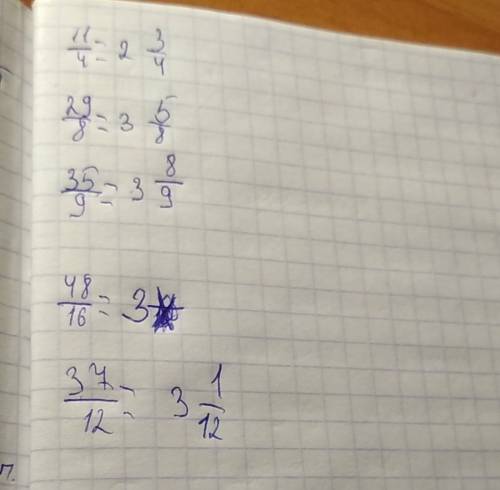 11/4 = 2 3/4
29/8 = 3 5/8
35/9 = 3 8/9
48/16 = 3
37/12 = 3 1/12
п.